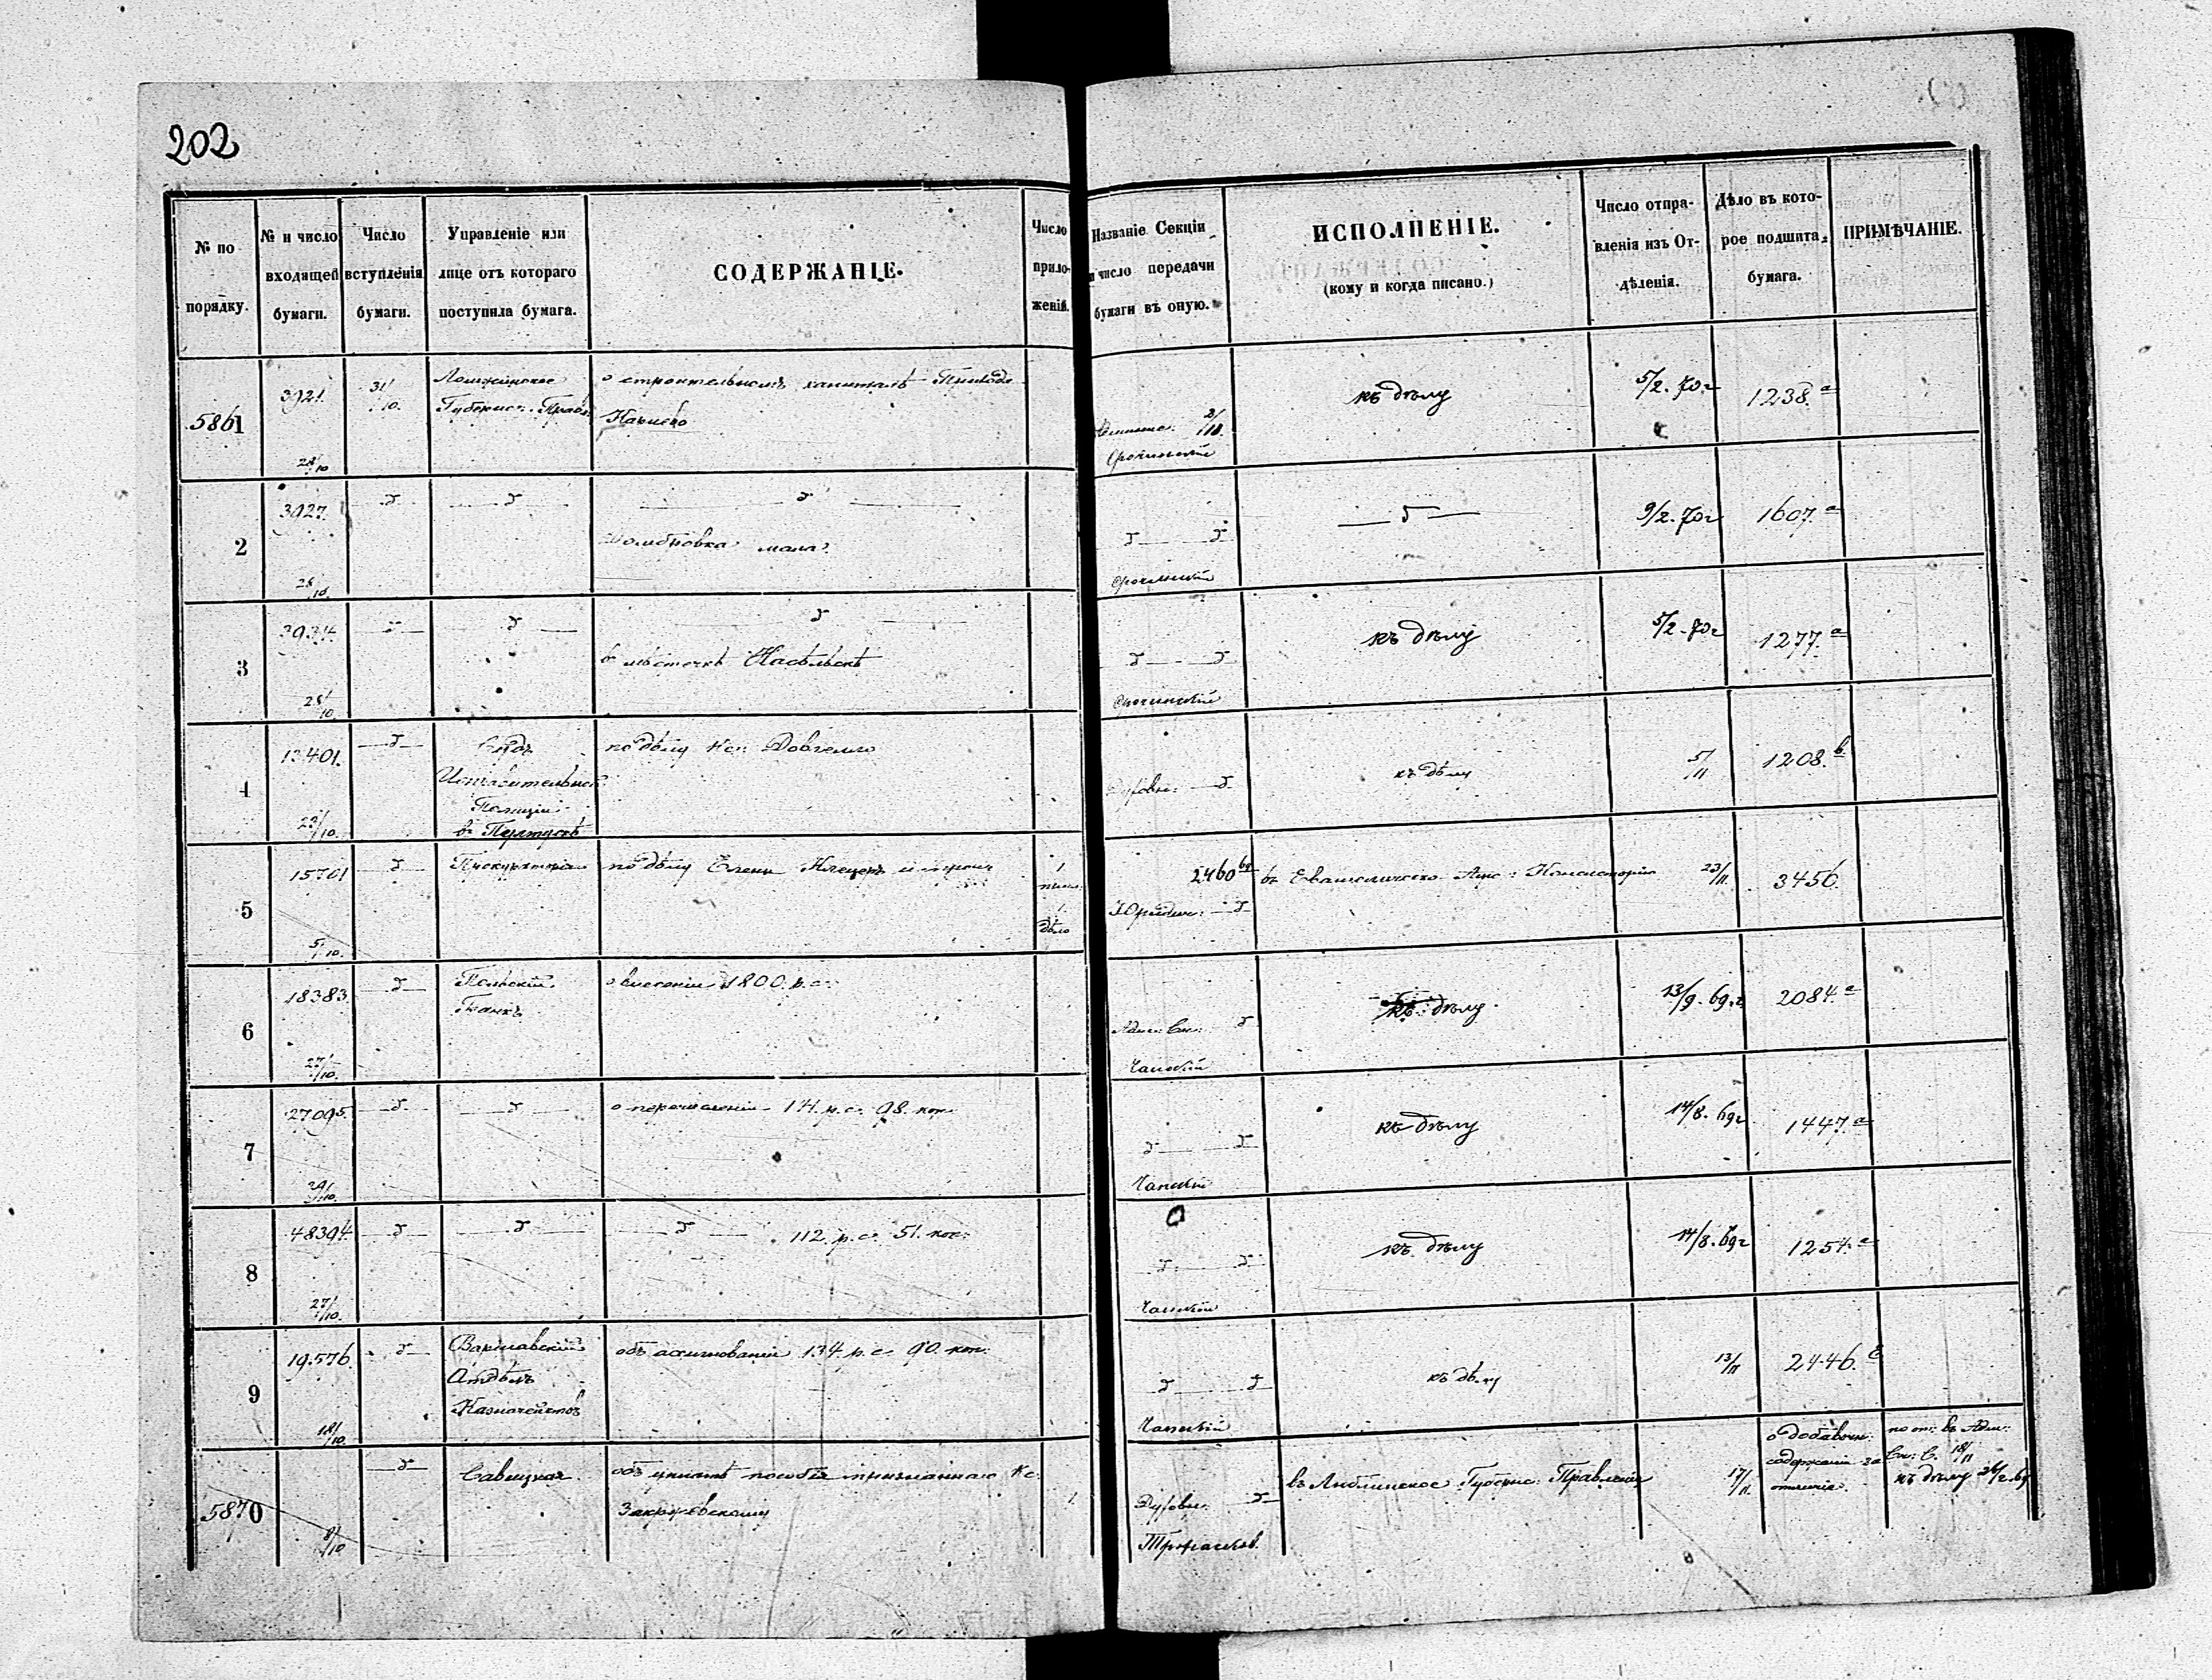 202
№ по порядку.
№ и число входящей бумаги.
Число вступленія бумаги.
Управленіе или лице отъ котораго поступила бумага.
СОДЕРЖАНІЕ.
Число приложеній.
Названіе Секціи и число передачи бумаги въ оную.
ИСПОЛНЕНІЕ.
(кому и когда писано.)
Число отправленія изъ Отдѣленія.
Дѣло въ которое подшита бумага.
ПРИМѢЧАНІЕ.
5861
3921.
28/10
31/10.
Ломжинское
Губернс: Правл:
о строительномъ капиталѣ
2/11.
къ дѣлу
5/2. 70 г
1238. а
2
3927.
28/10.
мала
9/2. 70 г
1607. а
3
3934.
28/10.
въ мѣстечкѣ Насѣльскѣ
къ дѣлу
5/2. 70 г
1277. а
4
13401.
23/10.
Судъ
Исправительной
Полиціи
въ Пултускѣ
по дѣлу Кс:
Духовн:
къ дѣлу
5/11
1208. b.
5
15701
5/10.
Прокураторія
по дѣлу Елены
1
1
дѣло
2460
Юридич:
въ Евангелическо Аугс: Консисторію
23/11
3456.
6
18383.
27/10.
Польскій
Банкъ
о внесеніи 1800. р. с.
Адм: Сек:
Чапскій
къ дѣлу
13/9. 69. г
2084. а
7
27095.
29/10.
о перечисленіи 14. р. с. 98. коп.
Чапскій
къ дѣлу
14/8. 69 г
1447. а
8
48394.
27/10.
112. р. с. 51. коп:
Чапскій
къ дѣлу
14/8. 69 г
1254. а
9
19576.
18/10.
Варшавскій
Отдѣлъ
Казначействъ
объ ассигнованіи 134. р. с. 90. коп:
Чапскій
къ дѣлу
13/11
2446. с
5870
8/10
Савицкая
объ уплатѣ пособія Кс:
Закржевскому
1.
Духовн:
въ Люблинское Губернс: Правленіе
17/11.
о добавочн:
содержаніи за
отличіе
по от: въ Адм:
Сек: С. 18/11
къ дѣлу 26/2. 69